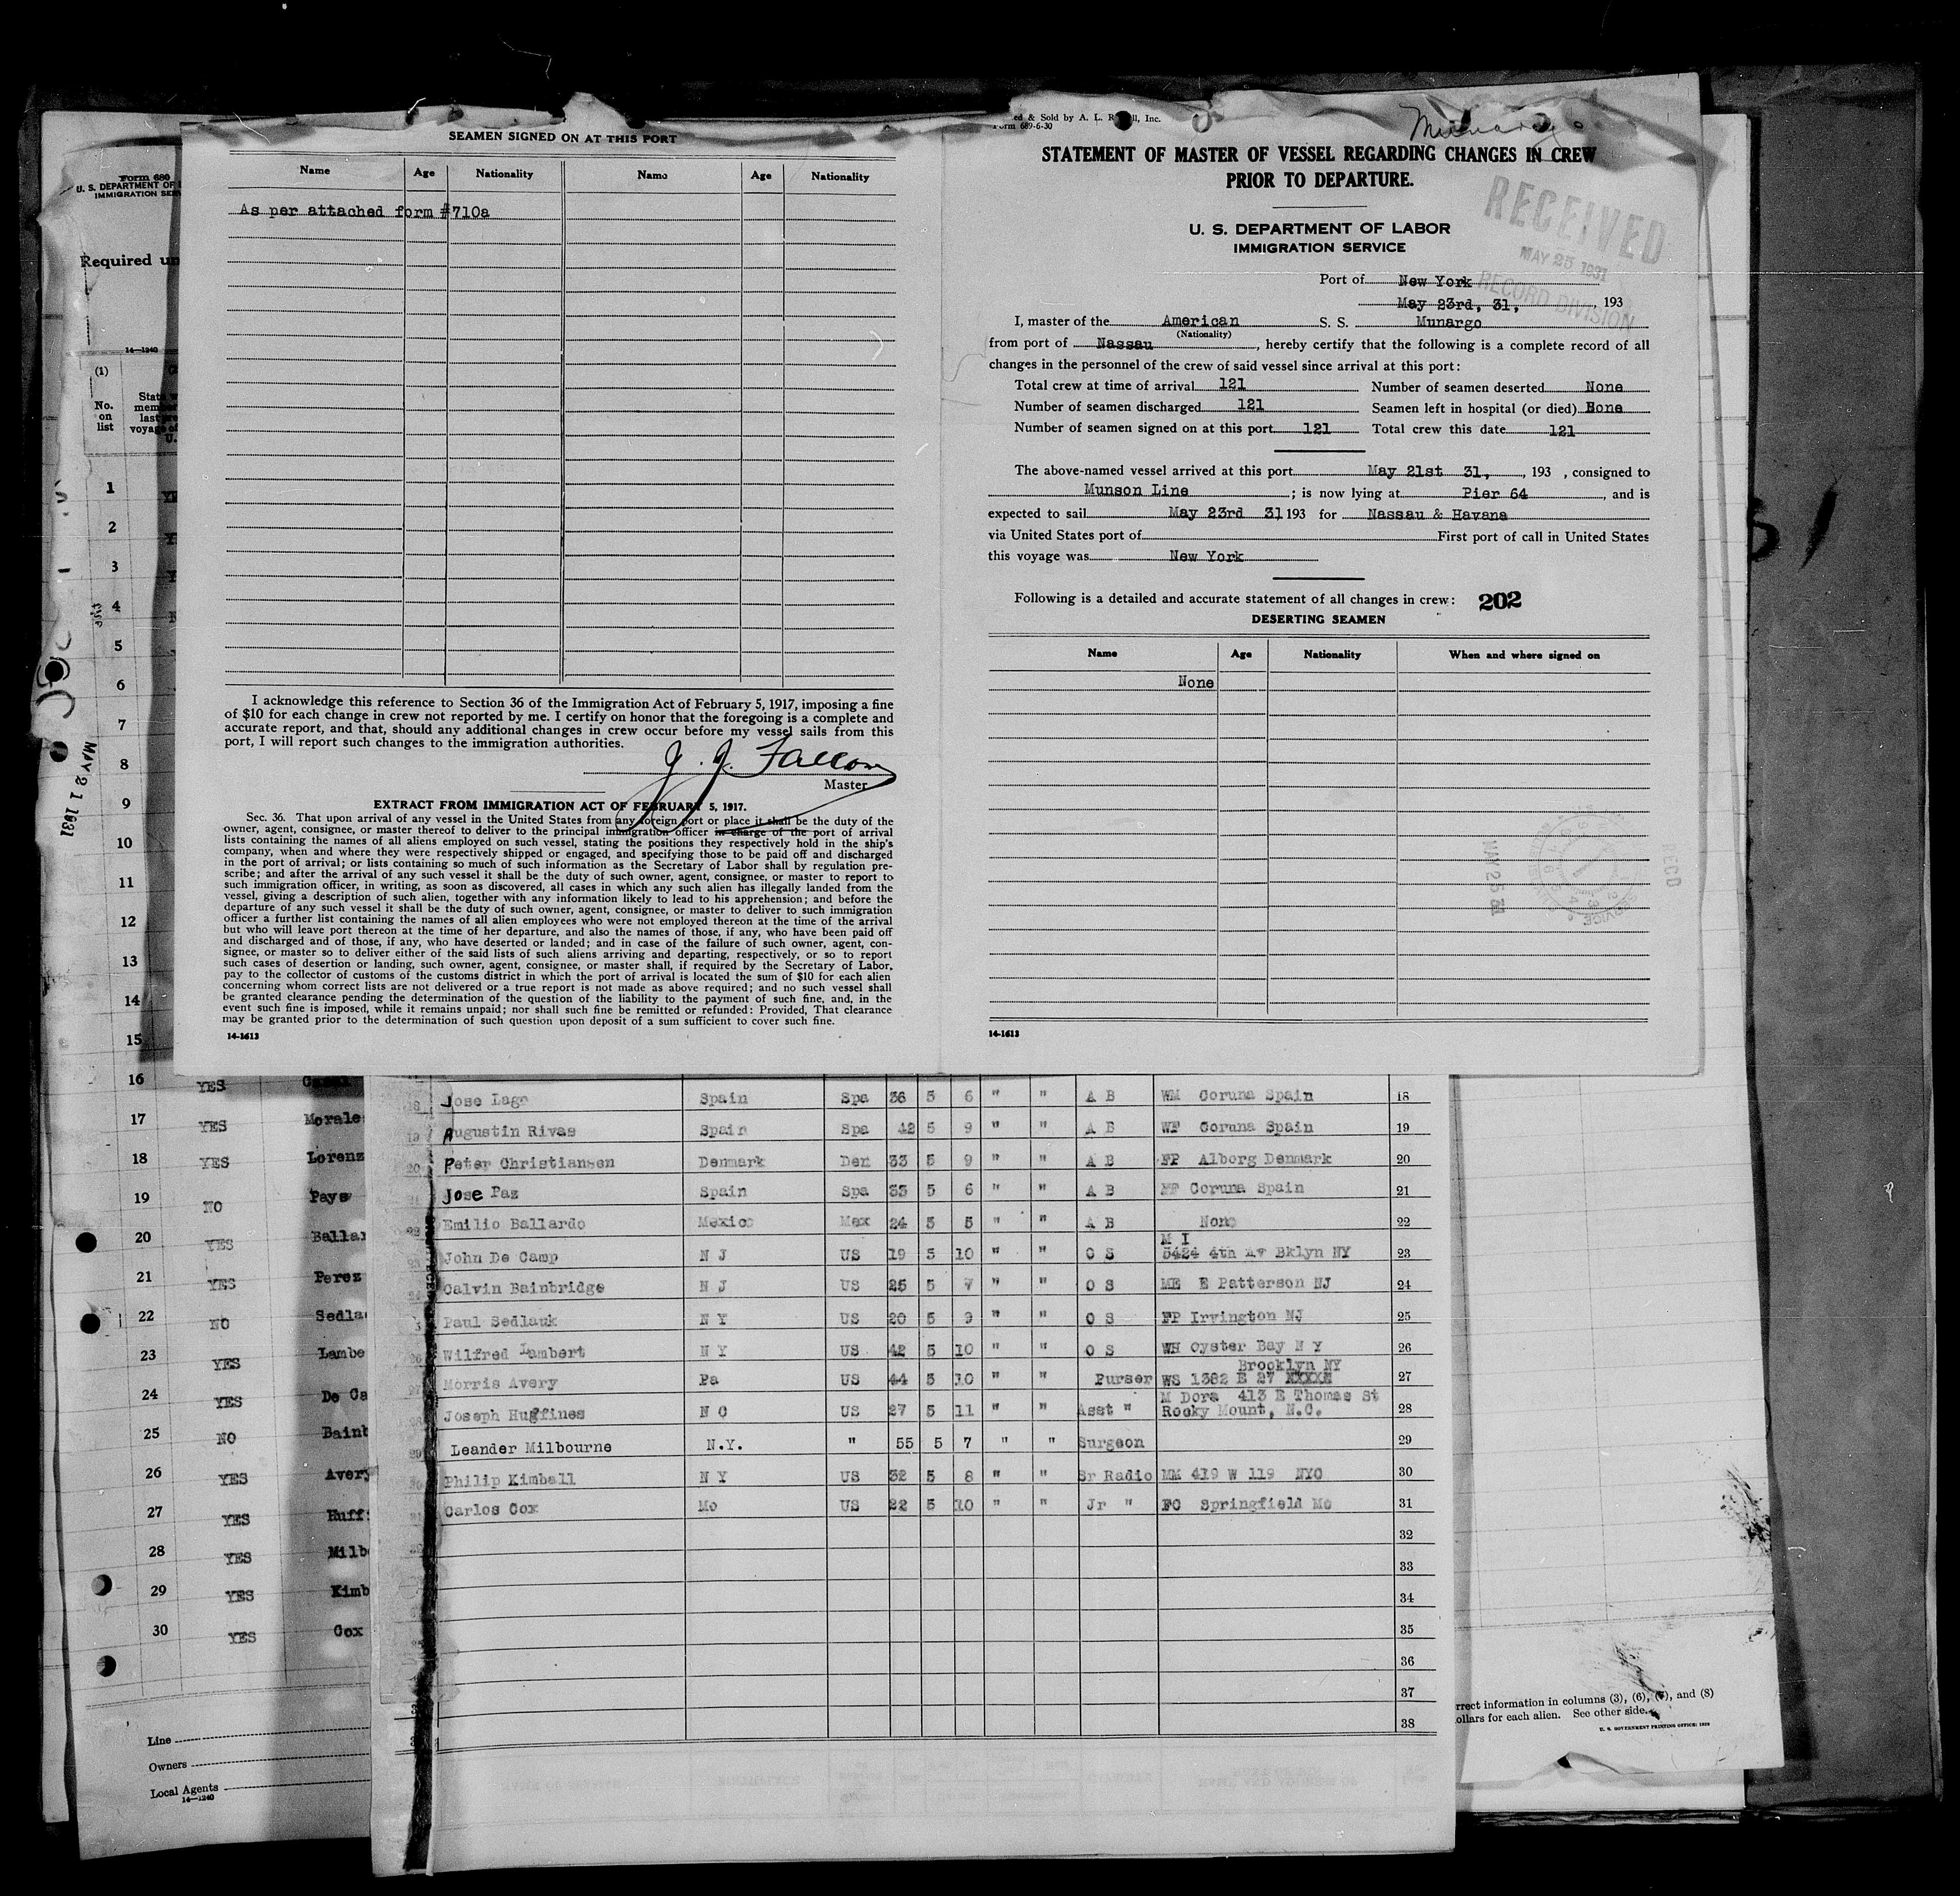 SEAMEN SIGNED ON AT THIS PORT
Name Age Nationality Name Age Nationality
As per attached form #710a
I acknowledge this reference to Section 36 of the Immigration Act of February 5, 1917, imposing a fine
of $10 for each change in crew not reported by me. I certify on honor that the foregoing is a complete and
accurate report, and that, should any additional changes in crew occur before my vessel sails from this
port, I will report such changes to the immigration authorities.
J. J. Fallon
Master
EXTRACT FROM IMMIGRATION ACT OF FEBRUARY 5, 1917.
Sec. 36. That upon arrival of any vessel in the United States from any foreign port or place it shall be the duty of the
owner, agent, consignee, or master thereof to deliver to the principal immigration officer in charge of the port of arrival
lists containing the names of all aliens employed on such vessel, stating the positions they respectively hold in the ship's
company, when and where they were respectively shipped or engaged, and specifying those to be paid off and discharged
in the port of arrival; or lists containing so much of such information as the Secretary of Labor shall by regulation pre-
scribe; and after the arrival of any such vessel it shall be the duty of such owner, agent, consignee, or master to report to
such immigration officer, in writing, as soon as discovered, all cases in which any such alien has illegally landed from the
vessel, giving a description of such alien, together with any information likely to lead to his apprehension; and before the
departure of any such vessel it shall be the duty of such owner, agent, consignee, or master to deliver to such immigration
officer a further list containing the names of all alien employees who were not employed thereon at the time of the arrival
but who will leave port thereon at the time of her departure, and also the names of those, if any, who have been paid off
and discharged and of those, if any, who have deserted or landed; and in case of the failure of such owner, agent, con-
signee, or master so to deliver either of the said lists of such aliens arriving and departing, respectively, or so to report
such cases of desertion or landing, such owner, agent, consignee, or master shall, if required by the Secretary of Labor,
pay to the collector of customs of the customs district in which the port of arrival is located the sum of $10 for each alien
concerning whom correct lists are not delivered or a true report is not made as above required; and no such vessel shall
be granted clearance pending the determination of the question of the liability to the payment of such fine, and, in the
event such fine is imposed, while it remains unpaid; nor shall such fine be remitted or refunded: Provided, That clearance
may be granted prior to the determination of such question upon deposit of a sum sufficient to cover such fine.
14-1613
ed & Sold by A. L. Inc.
Form 689-6-30
Munargo
STATEMENT OF MASTER OF VESSEL REGARDING CHANGES IN CREW
PRIOR TO DEPARTURE.
U. S. DEPARTMENT OF LABOR
IMMIGRATION SERVICE
RECEIVED
MAY 25 1931
RECORD DIVISION
Port of New York
May 23rd, 31, , 193
I, master of the American S. S. Munargo
(Nationality)
from port of Nassau , hereby certify that the following is a complete record of all
changes in the personnel of the crew of said vessel since arrival at this port:
Total crew at time of arrival 121 Number of seamen deserted None
Number of seamen discharged 121 Seamen left in hospital (or died) None
Number of seamen signed on at this port 121 Total crew this date 121
The above-named vessel arrived at this port May 21st 31, , 193 , consigned to
Munson Line ; is now lying at Pier 64 , and is
expected to sail May 23rd 31 193 for Nassau & Havana
via United States port of First port of call in United States
this voyage was New York
Following is a detailed and accurate statement of all changes in crew: 202
DESERTING SEAMEN
Name Age Nationality When and where signed on
None
MAY 25 31
RECD
14-1613
Form 680
U. S. DEPARTMENT OF
IMMIGRATION SER
Required un
14-1240
(1)
No. on list
MAY 21 1931
1
2
3
4
5
6
7
8
9
10
11
12
13
14
15
16 YES
17 YES Morale
18 YES Lorenz
19 NO Paye
20 YES Balla
21 YES Perez
22 NO Sedla
23 YES Lambe
24 YES De Ca
25 NO Bainb
26 YES Avery
27 YES Huff
28 YES Milb
29 YES Kimb
30 YES Cox
Line
Owners
Local Agents
14-1240
Jose Lago Spain Spa 36 5 6 " " A B WM Coruna Spain 18
Augustin Rivas Spain Spa 42 5 9 " " A B WF Coruna Spain 19
Peter Christiansen Denmark Den 33 5 9 " " A B FP Alborg Denmark 20
Jose Paz Spain Spa 33 5 6 " " A B FP Coruna Spain 21
Emilio Ballardo Mexico Mex 24 5 5 " " A B None 22
M I
John De Camp N J US 19 5 10 " " O S 5424 4th Av Bklyn NY 23
Calvin Bainbridge N J US 25 5 7 " " O S ME E Patterson NJ 24
Paul Sedlauk N Y US 20 5 9 " " O S FP Irvington NJ 25
Wilfred Lambert N Y US 42 5 10 " " O S WH Oyster Bay N Y 26
Brooklyn NY
Morris Avery Pa US 44 5 10 " " Purser WS 1382 E 27 XXXXX 27
M Dora 413 E Thomas St
Joseph Huffines N C US 27 5 11 " " Asst " Rocky Mount, N.C. 28
Leander Milbourne N.Y. " 55 5 7 " " Surgeon 29
Philip Kimball N Y US 32 5 8 " " Sr Radio MM 419 W 119 NYC 30
Carlos Cox Mo US 22 5 10 " " Jr " FC Springfield Mo 31
32
33
34
35
36
37
38
rrect information in columns (3), (6), (7), and (8)
ollars for each alien. See other side.
U. S. GOVERNMENT PRINTING OFFICE: 1929